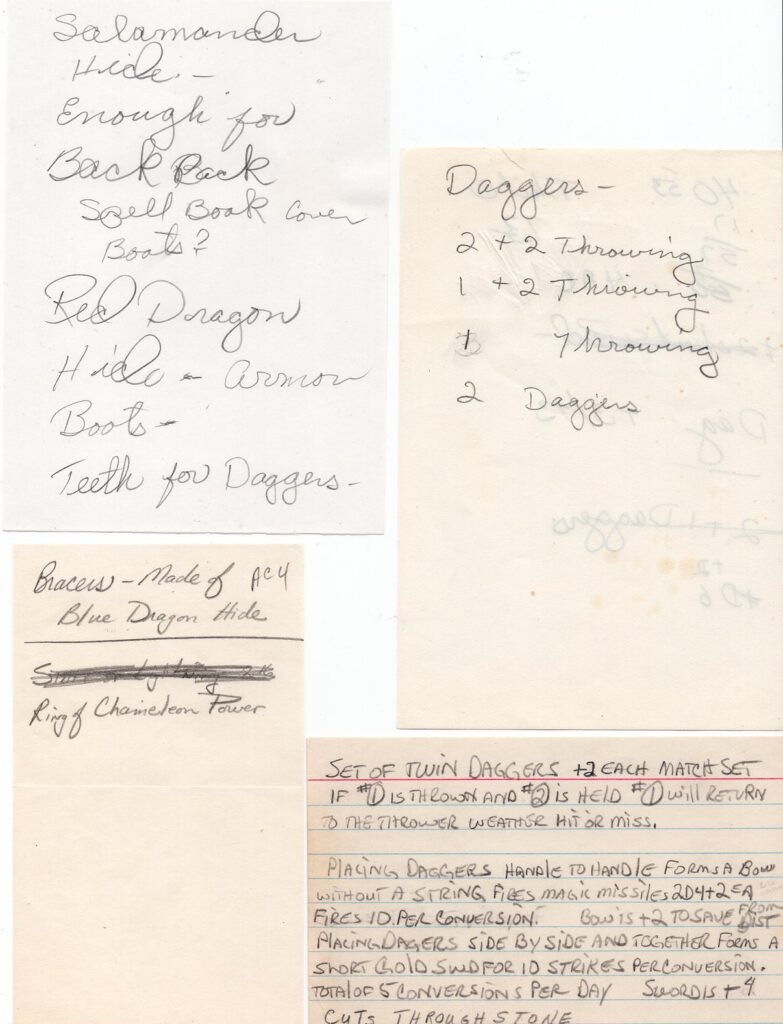 Salamander
Hide -
Enough for
Back Pack
Spell Book Cover
Boots?
Red Dragon
Hide - armor
Boots -
Teeth for Daggers -
Daggers -
2 + 2 Throwing
1 + 2 Throwing
1 Throwing
2 Daggers
Bracers - Made of AC4
Blue Dragon Hide
Ring of Chameleon Power
SET OF TWIN DAGGERS +2 EACH MATCH SET
IF #1 IS THROWN AND #2 IS HELD #1 WILL RETURN
TO THE THROWER WEATHER HIT OR MISS.
PLACING DAGGERS HANDLE TO HANDLE FORMS A BOW
WITHOUT A STRING FIRES MAGIC MISSILES 2D4+2 EA
FIRES 10 PER CONVERSION. BOW IS +2 TO SAVE FROM DIST
PLACING DAGERS SIDE BY SIDE AND TOGETHER FORMS A
SHORT GOLD SWD FOR 10 STRIKES PER CONVERSION.
TOTAL OF 5 CONVERSIONS PER DAY SWORD IS +4
CUTS THROUGH STONE